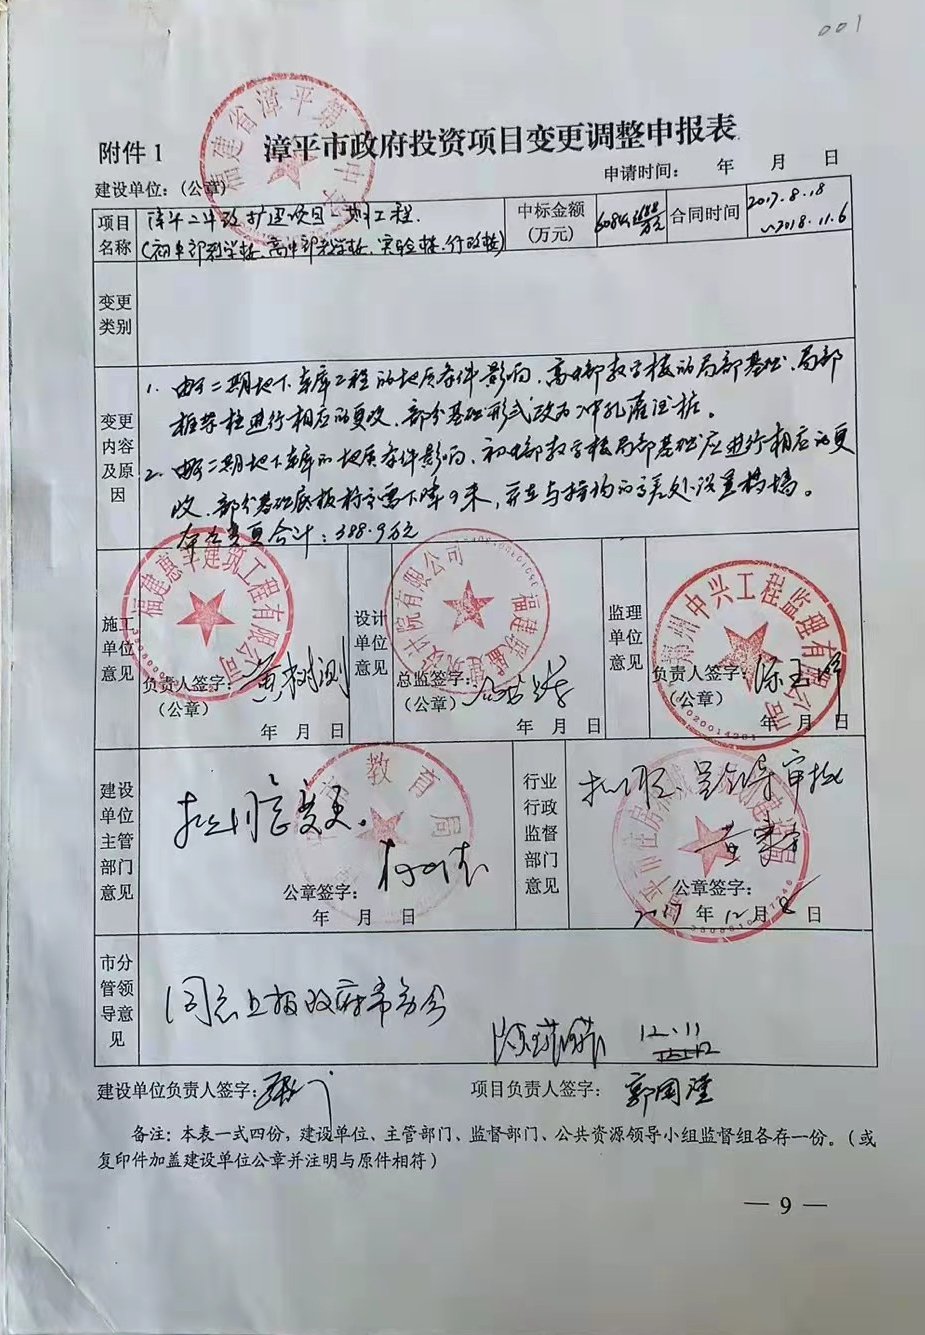 001
附件1
漳平市政府投资项目变更调整申报表
建设单位:(公章)
申请时间: 年 月 日
项目名称
漳平二中改扩建项目一期工程.
(初中部教学楼、高中部教学楼、实验楼、行政楼)
中标金额(万元)
合同时间
2017.8.18
~2018.11.6
变更类别
变更内容及原因
1. 由于二期地下车库工程的地质条件影响、高中部教学楼的局部基础、局部
框架柱进行相应的更改、部分基础形式改为冲孔灌注桩。
2. 由于二期地下车库的地质条件影响、初中部教学楼局部基础应进行相应的更
改、部分基础底板标高需下降9米,并在与
处设置挡墙。
合计:388.9万元
施工单位意见
福建惠丰建筑工程有限公司
负责人签字:
(公章)
年 月 日
设计单位意见
总监签字:
(公章)
年 月 日
监理单位意见
福州中兴工程监理有限公司
负责人签字:
(公章)
年 月 日
建设单位主管部门意见
拟同意变更。
教育局
公章签字:
年 月 日
行业行政监督部门意见
审批
公章签字:
2017年12月8日
市分管领导意见
同意上报政府常务会
12.11
建设单位负责人签字:
项目负责人签字:
郭国隆
备注:本表一式四份,建设单位、主管部门、监督部门、公共资源领导小组监督组各存一份。(或
复印件加盖建设单位公章并注明与原件相符)
— 9 —